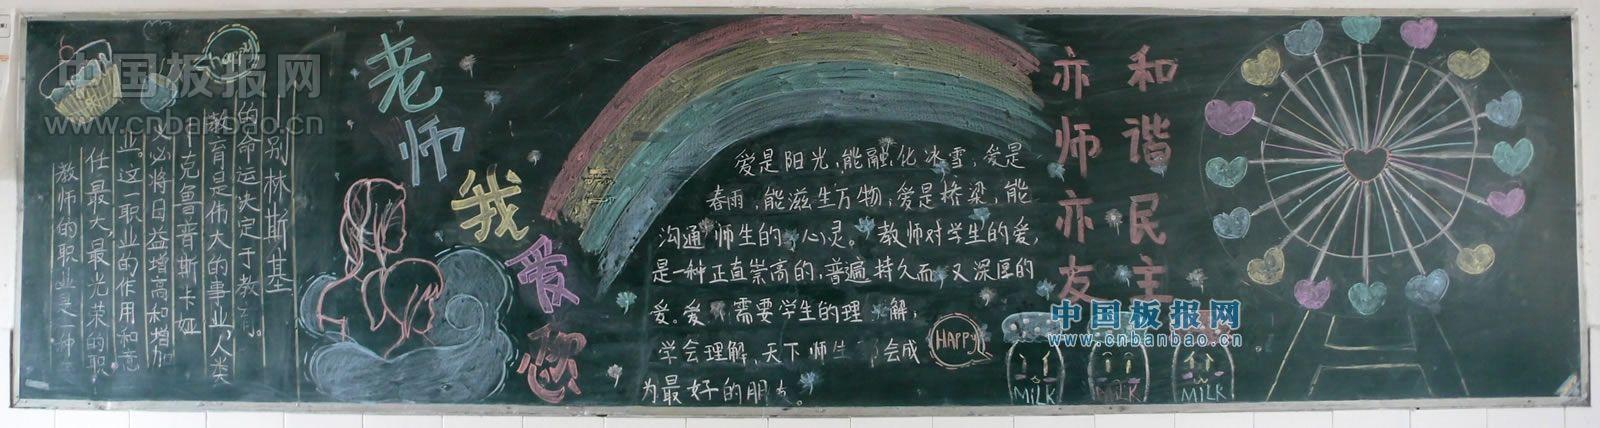 中国板报网
www.cnbanbao.cn
happy
教师的职业是一种
任最大最光荣的职
业。这一职业的作用和意
义必将日益增高和增加
克鲁普斯卡娅
教育是伟大的事业,人类
的命运决定于教育。
别林斯基
老师我爱您
爱是阳光,能融化冰雪,爱是
春雨,能滋生万物,爱是桥梁,能
沟通师生的心灵。教师对学生的爱,
是一种正直崇高的,普遍持久而又深厚的
爱。爱需要学生的理解,
学会理解,天下师生会成
为最好的朋友。
HAPPY
和谐民主
亦师亦友
MILK
MILK
MILK
中国板报网
www.cnbanbao.cn